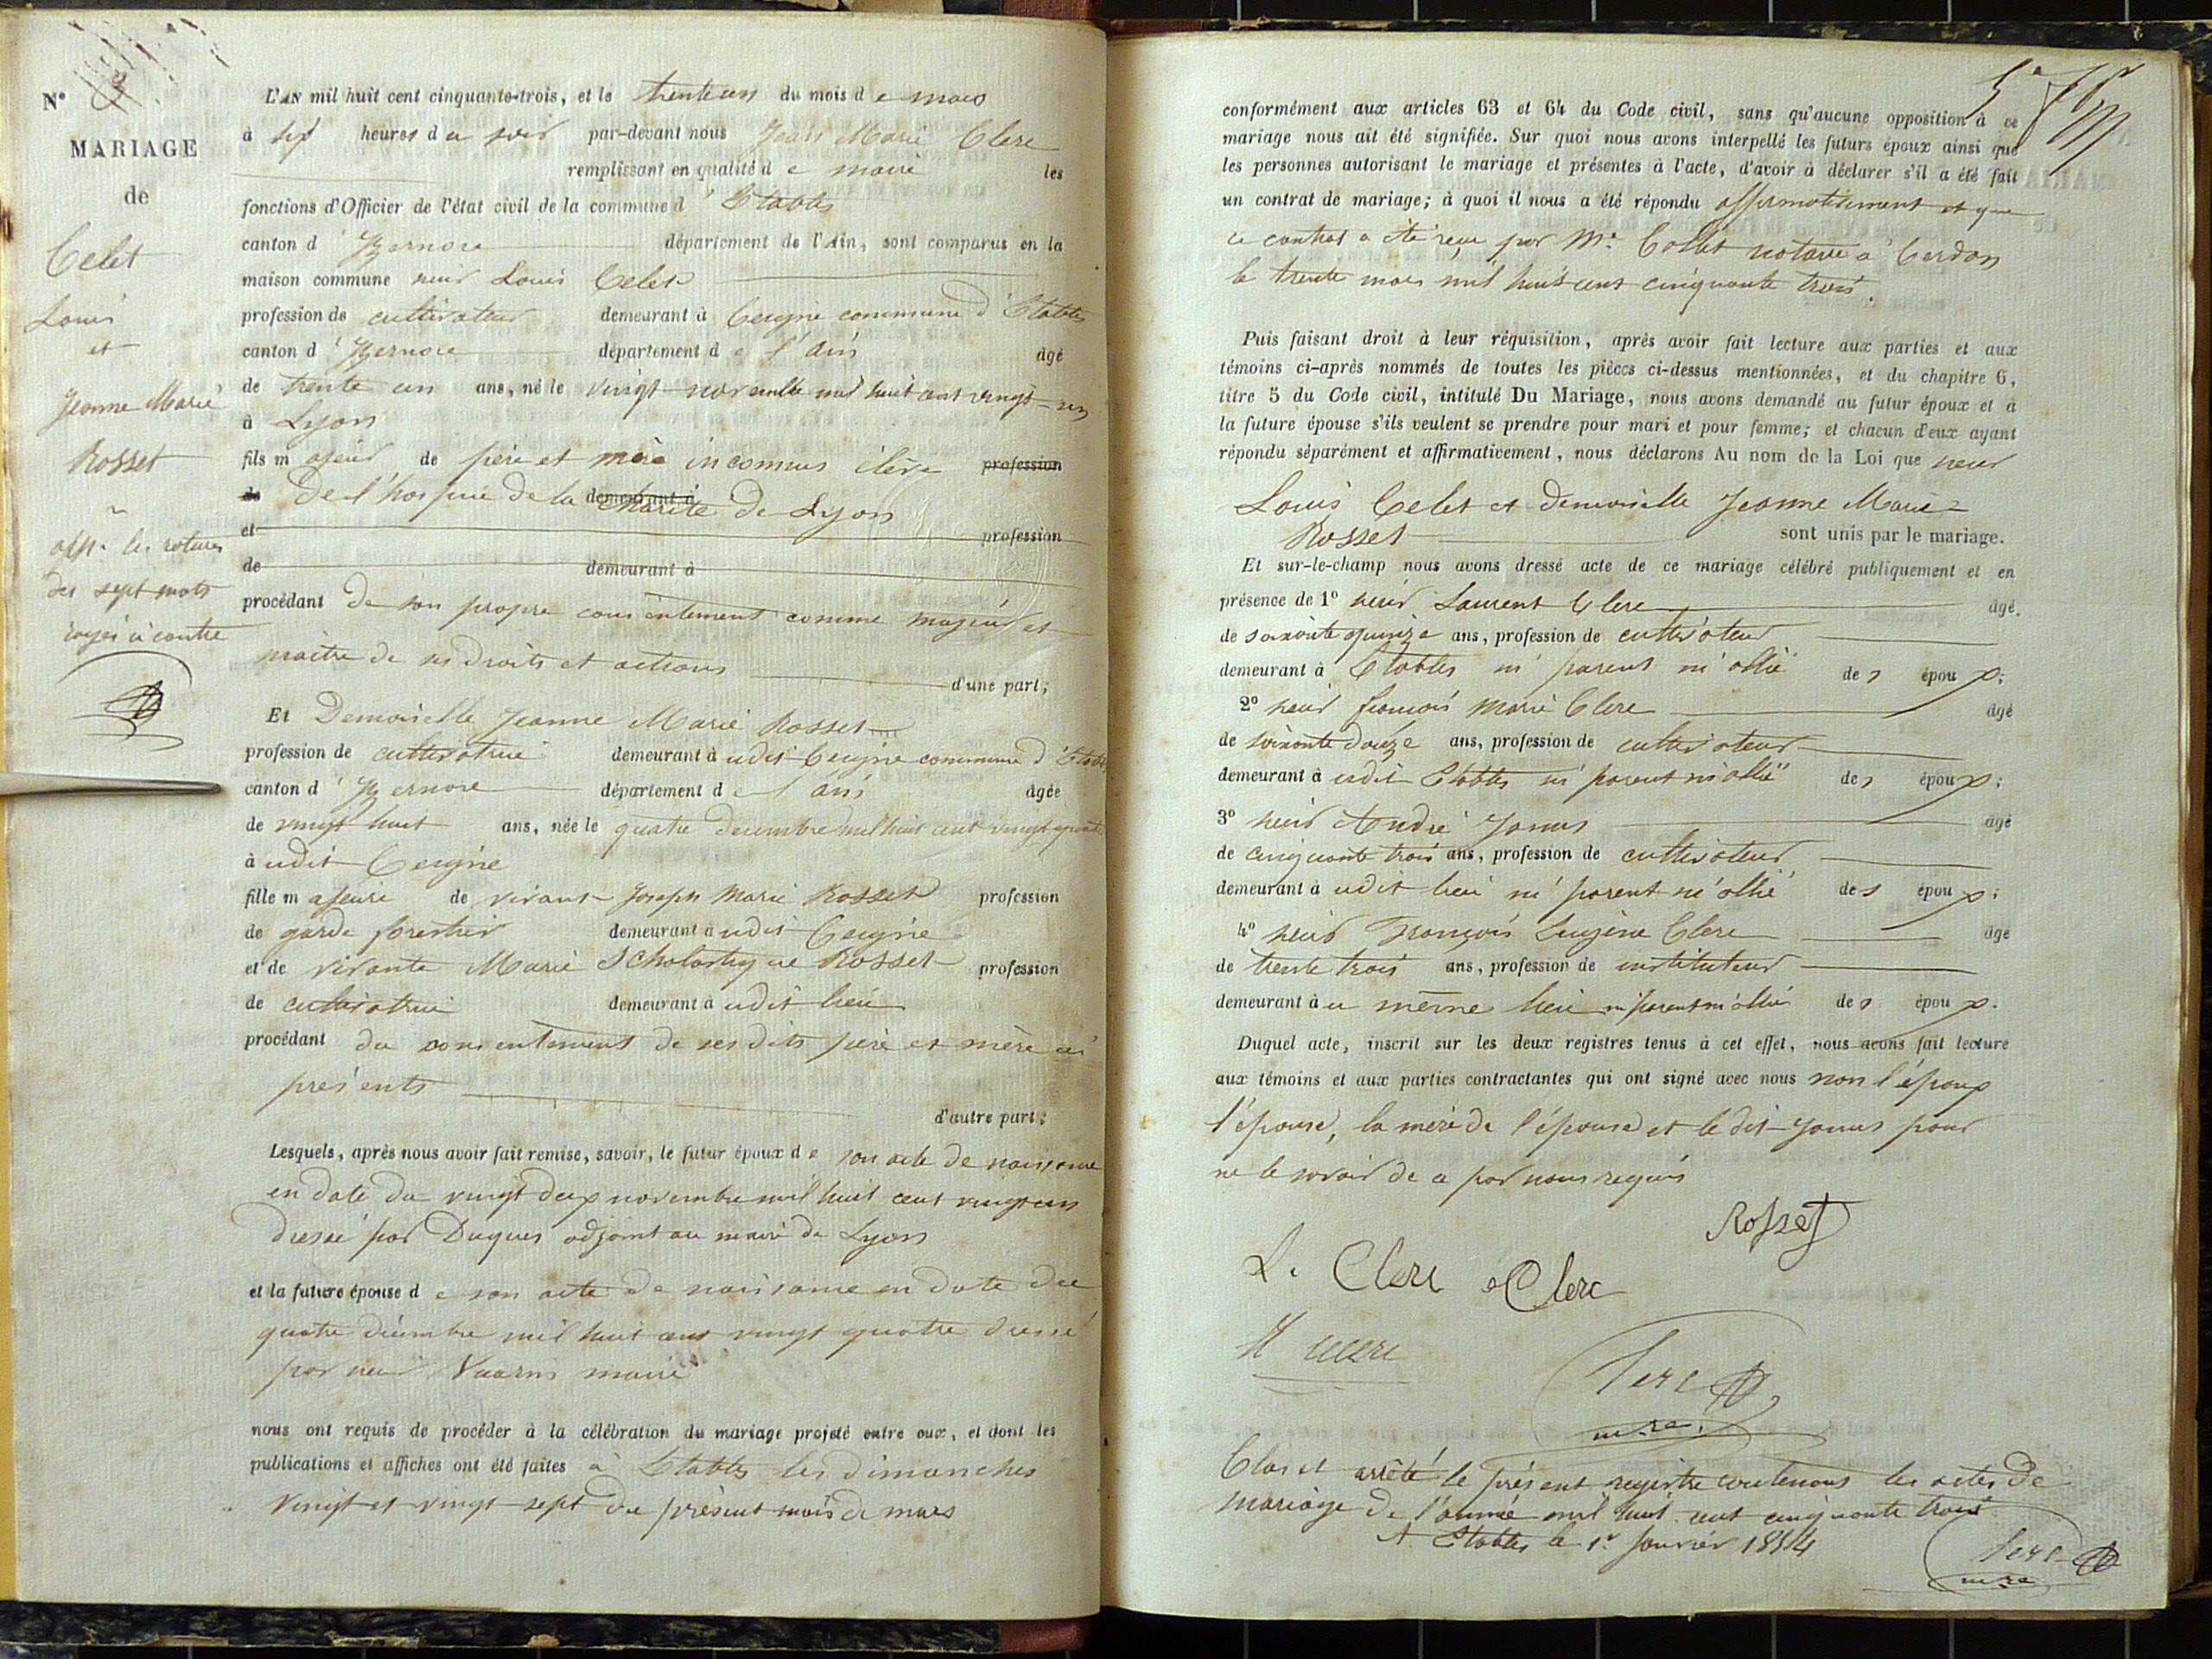 N° 3
MARIAGE
de
Celet
Louis
et
Jeanne Marie
Rosset
app. les ratures
des sept mots
rayés ci contre
L'AN mil huit cent cinquante-trois, et le trente un du mois de mars
à six heures du soir par-devant nous Jean Marie Clerc
remplissant en qualité de maire les
fonctions d'Officier de l'état civil de la commune d'Etables
canton d'Izernore département de l'Ain, sont comparus en la
maison commune sieur Louis Celet
profession de cultivateur demeurant à Ceigne commune d'Etables
canton d'Izernore département de l'ain âgé
de trente un ans, né le vingt novembre mil huit cent vingt-un
à Lyon
fils majeur de père et mère inconnus élève profession
de De l'hospice de la demeurant à charité de Lyon
et profession
de demeurant à
procédant de son propre consentement comme majeur et
maitre de ses droits et actions d'une part;
Et Demoiselle Jeanne Marie Rosset
profession de cultivatrice demeurant à udit Ceigne commune d'Etables
canton d'Izernore département de l'ain âgée
de vingt huit ans, née le quatre decembre mil huit cent vingt quatre
à udit Ceigne
fille majeure de vivant Joseph Marie Rosset profession
de garde forestier demeurant à udit Ceigne
et de vivante Marie Scholastique Rosset profession
de cultivatrice demeurant à udit lieu
procédant du consentement de ses dits père et mère ci
présents
d'autre part;
Lesquels, après nous avoir fait remise, savoir, le futur époux de son acte de naissance
en date du vingt deux novembre mil huit cent vingt un
dressé par Duques adjoint au maire de Lyon
et la future épouse de son acte de naissance en date du
quatre décembre mil huit cent vingt quatre dressé
par sieur Vuarin maire
nous ont requis de procéder à la célébration du mariage projeté entre eux, et dont les
publications et affiches ont été faites à Etables les dimanches
vingt et vingt-sept du présent mois de mars
conformément aux articles 63 et 64 du Code civil, sans qu'aucune opposition à ce
mariage nous ait été signifiée. Sur quoi nous avons interpellé les futurs époux ainsi que
les personnes autorisant le mariage et présentes à l'acte, d'avoir à déclarer s'il a été fait
un contrat de mariage; à quoi il nous a été répondu affirmativement et que
ce contrat a été reçu par Me. Collet notaire à Cerdon
le trente mars mil huit cent cinquante trois.
Puis faisant droit à leur réquisition, après avoir fait lecture aux parties et aux
témoins ci-après nommés de toutes les pièces ci-dessus mentionnées, et du chapitre 6,
titre 5 du Code civil, intitulé Du Mariage, nous avons demandé au futur époux et à
la future épouse s'ils veulent se prendre pour mari et pour femme; et chacun d'eux ayant
répondu séparément et affirmativement, nous déclarons Au nom de la Loi que sieur
Louis Celet et Demoiselle Jeanne Marie
Rosset sont unis par le mariage.
Et sur-le-champ nous avons dressé acte de ce mariage célébré publiquement et en
présence de 1° sieur Laurent Clerc âgé
de soixante quinze ans, profession de cultivateur
demeurant à Etables ni parent ni allié des époux;
2° sieur françois Marie Clerc âgé
de soixante douze ans, profession de cultivateur
demeurant à udit Etables ni parent ni allié des époux;
3° sieur André Janus âgé
de cinquante trois ans, profession de cultivateur
demeurant à udit lieu ni parent ni allié des époux;
4° sieur François Eugène Clerc âgé
de trente trois ans, profession de instituteur
demeurant à u même lieu ni parent ni allié des époux.
Duquel acte, inscrit sur les deux registres tenus à cet effet, nous avons fait lecture
aux témoins et aux parties contractantes qui ont signé avec nous non l'époux
l'épouse, la mère de l'épouse et le dit Janus pour
ne le savoir de ce par nous requis
Rosset
L. Clerc Clerc
Clerc
Clerc
mre.
Clos et arrêté le présent registre contenant les actes de
mariage de l'année mil huit cent cinquante trois
A Etables le 1er janvier 1854
Clerc
mre